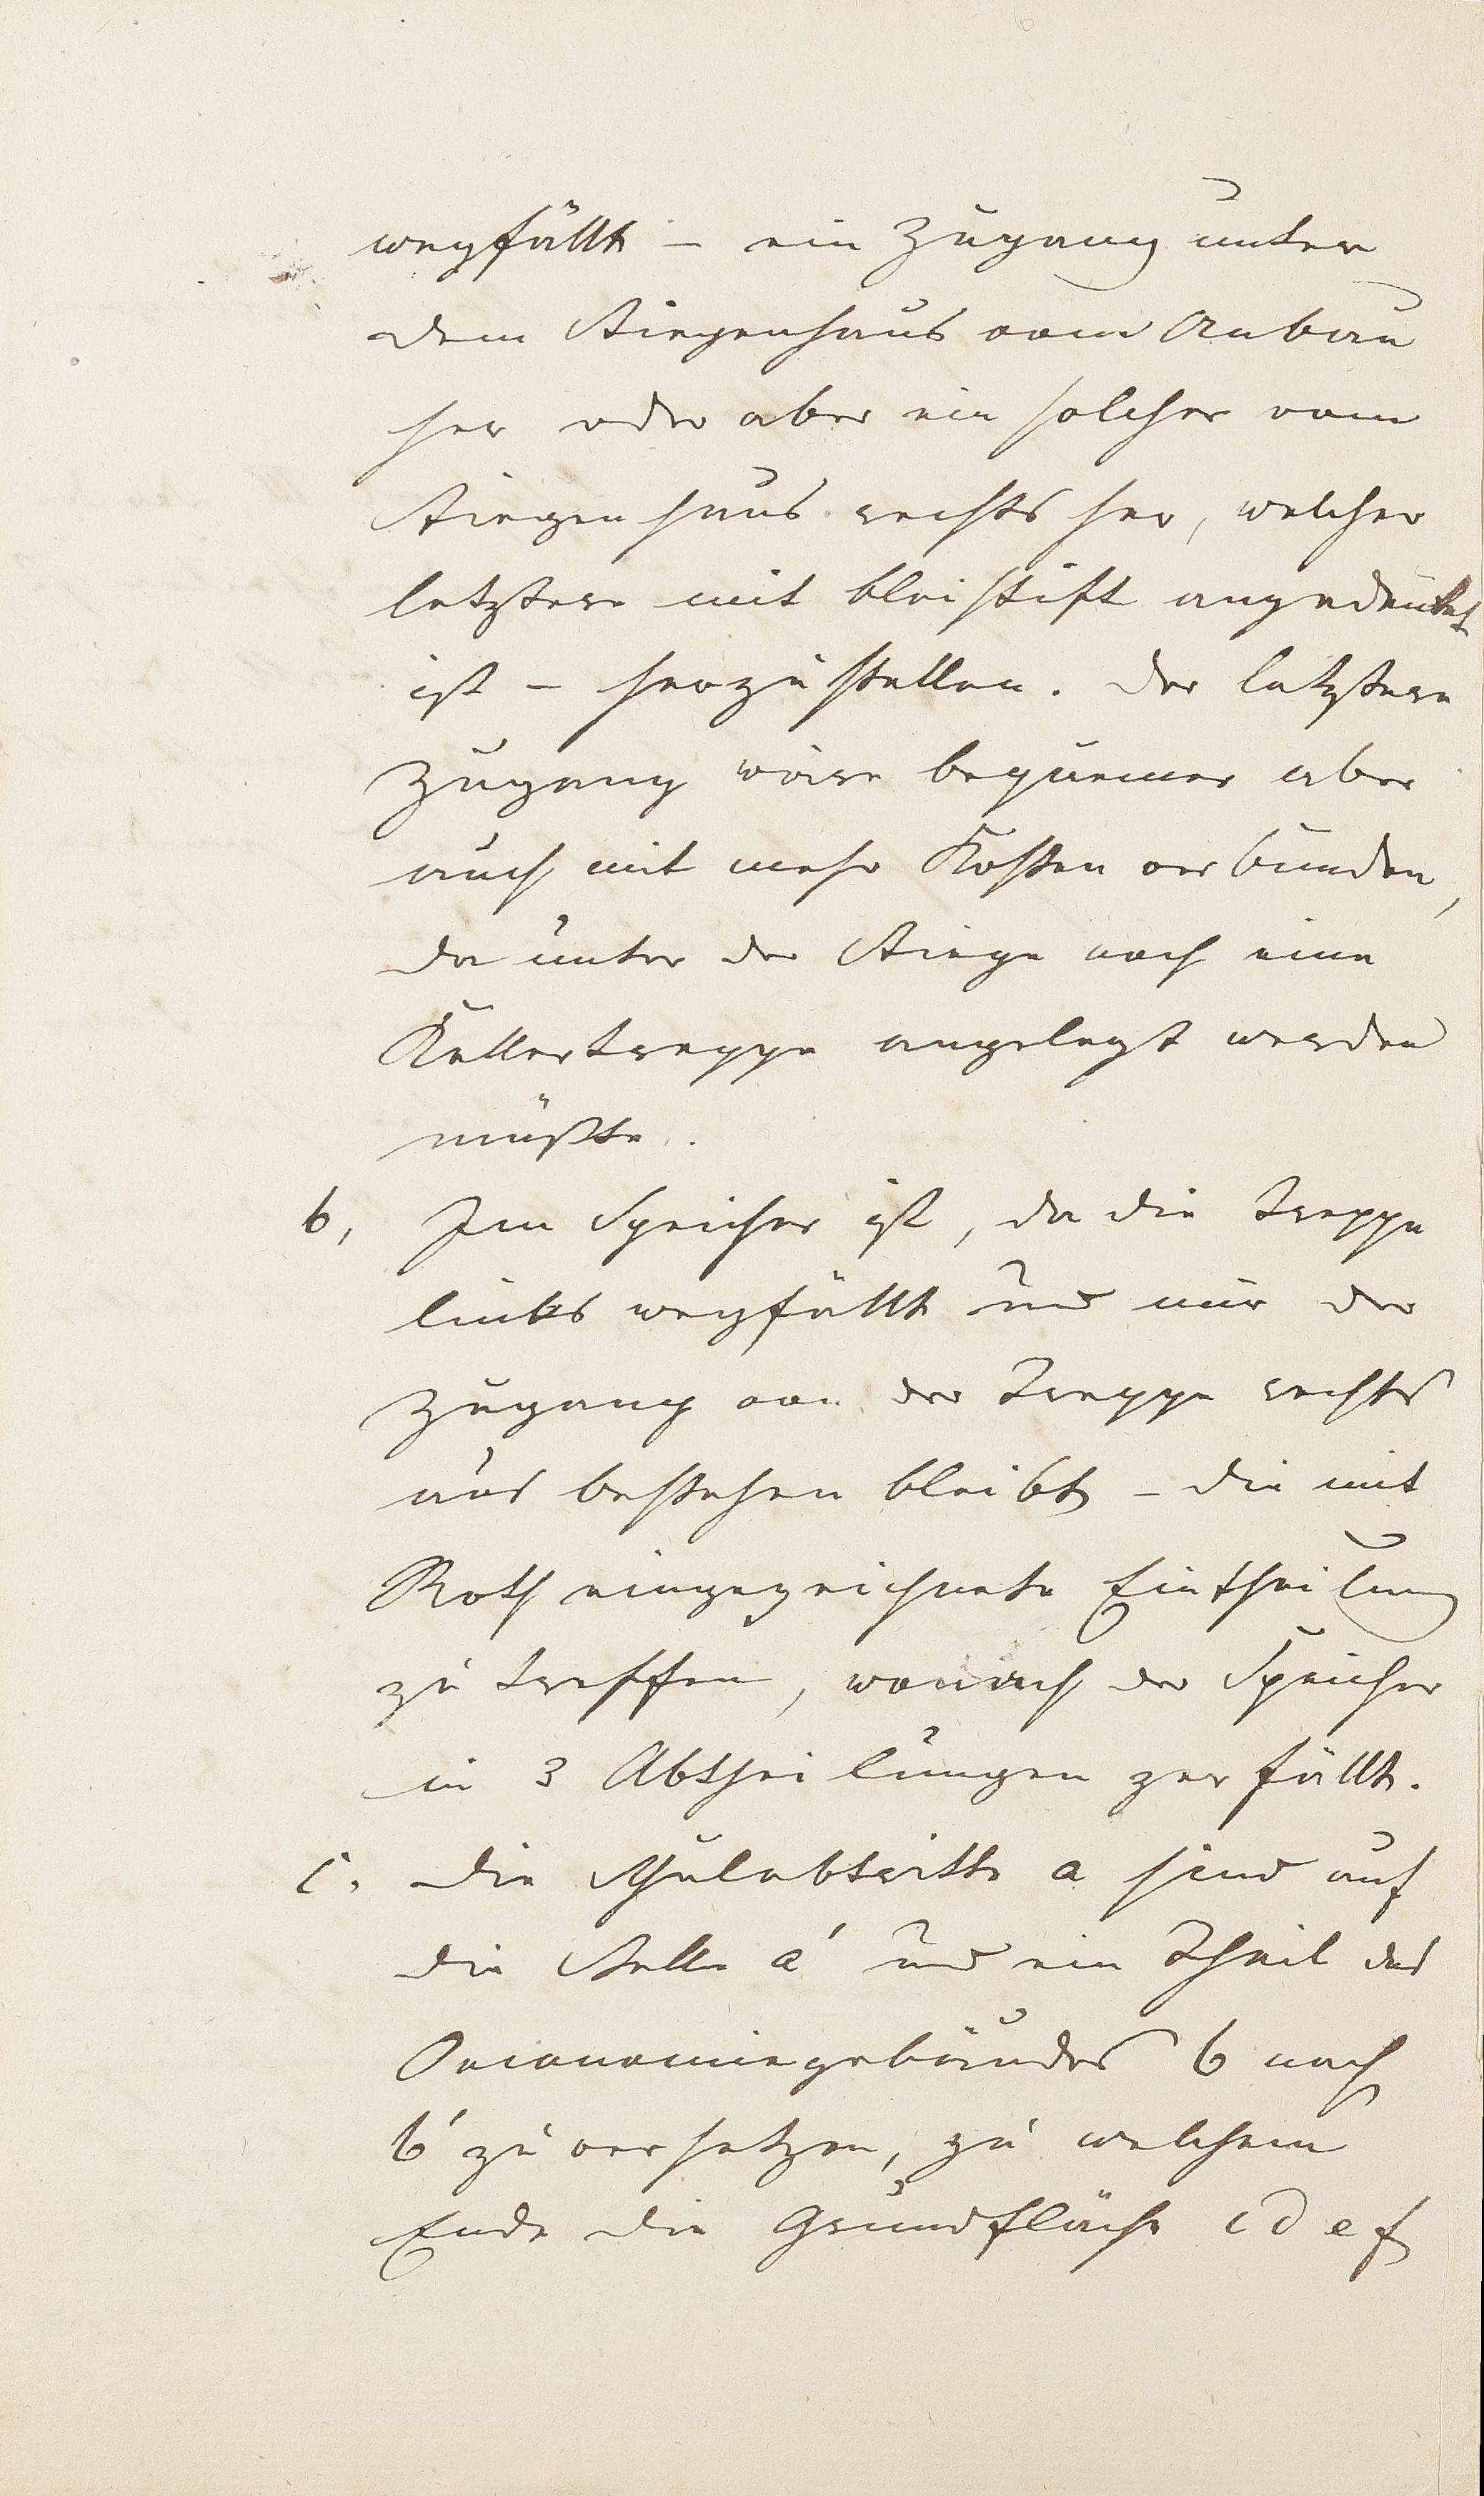 wegfällt – ein Zugang unter
dem Stiegenhaus vom Anbau
her oder aber ein solcher vom
Stiegenhaus rechts her, welcher
letztere mit Bleistift angedeutet
ist – herzustellen. Der letztere
Zugang wäre bequemer aber
auch mit mehr Kosten verbunden,
da unter der Stiege noch eine
Kellertreppe angelegt werden
müßte.
b, Im Speicher ist, da die Treppe
links wegfällt und nur der
Zugang von der Treppe rechts
aus bestehen bleibt – die mit
Roth eingezeichnete Eintheilung
zu treffen, wonach der Speicher
in 3 Abtheilungen zerfällt.
c. Die Schulabtritte a sind auf
die Stelle a' und ein Theil des
Oeconomiegebäudes b nach
b' zu versetzen, zu welchem
Ende die Grundfläche c d e f